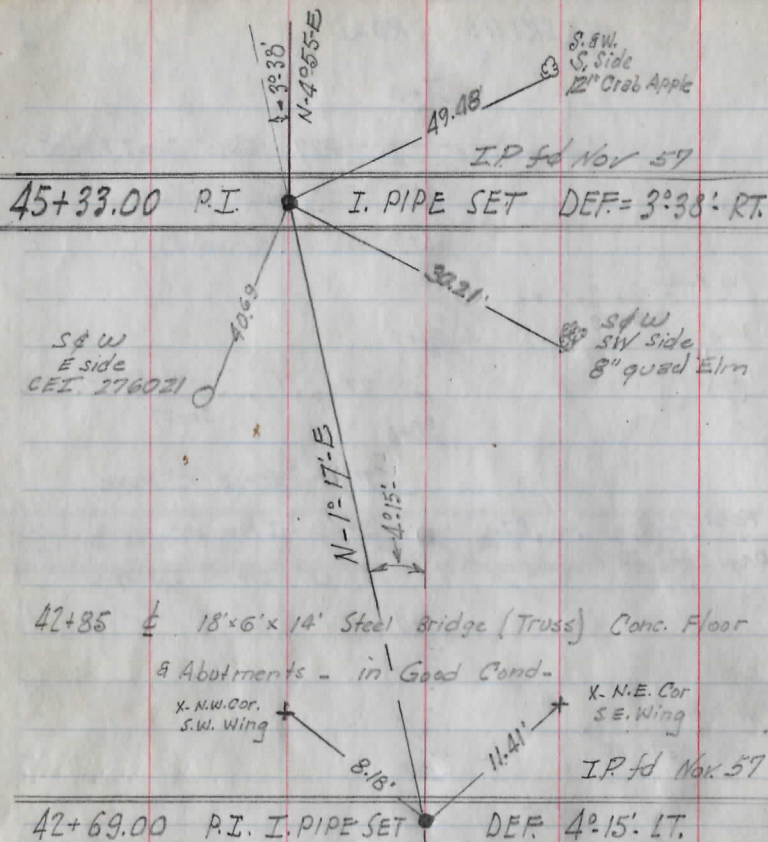 ∠=3°38'
N-4°55-E
S.&W.
S. Side
12" Crab Apple
49.48'
I.P. fd Nov 57
45+33.00 P.I. I. PIPE SET DEF.= 3°38'- RT.
30.21'
40.69
S&W
E side
CEI. 276021
S&W
SW side
8" quad Elm
N-1°-17'-E
4°15'-
42+85 ℄ 18'x6'x14' Steel Bridge (Truss) Conc. Floor
& Abutments - in Good Cond-
X- N.W. Cor.
S.W. Wing
X- N.E. Cor
S.E. Wing
8.18'
11.41'
I.P. fd Nov. 57
42+69.00 P.I. I. PIPE SET DEF. 4°-15'- LT.